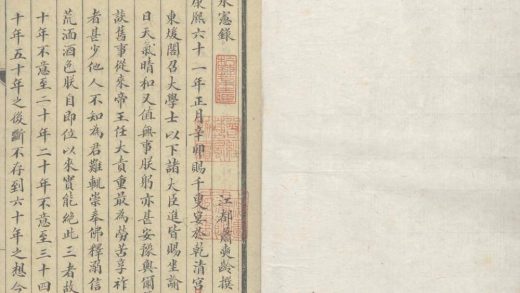 永憲錄
江都蕭奭齡撰
康熙六十一年正月辛卯賜千叟宴於乾清宮
東煖閣召大學士以下諸大臣進皆賜坐諭
日天氣晴和又值無事朕躬亦甚安豫與爾
談舊事從來帝王任大責重最為勞苦享祚
者甚少他人不知為君難輒崇奉佛釋溺信
荒酒酒色朕自即位以來實能絕此三者故
十年不意至二十年二十年不意至三十四
十年五十年之後斷不存到六十年之想今